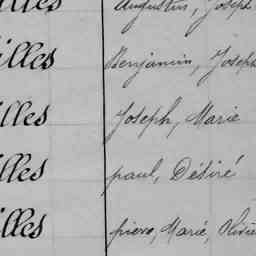 Augustin, Joseph
illes Benjamin, Joseph
illes Joseph, Marie
illes paul, Désiré
illes pierre, Marie,